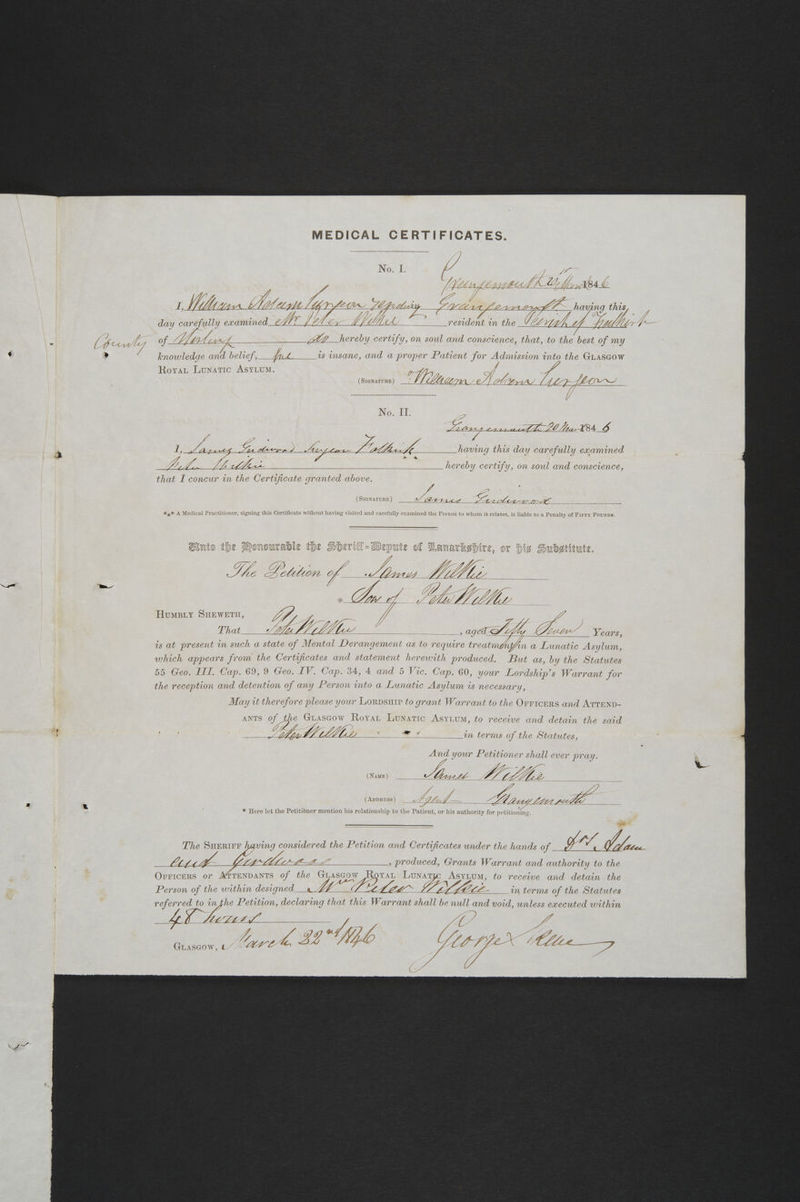 MEDICAL CERTIFICATES.
No. I.
Grangemouth 21st March 1846
I, William Adam Surgeon residing Grangemouth having this
day carefully examined Mr Peter Wilkie resident in the Parish of Falkirk
County of Stirling do hereby certify, on soul and conscience, that, to the best of my
knowledge and belief, he is insane, and a proper Patient for Admission into the GLASGOW
ROYAL LUNATIC ASYLUM.
(SIGNATURE) William Adam Surgeon
No. II.
Grangemouth 20 Mar 1846
I, James Girdwood Surgeon Falkirk having this day carefully examined
Peter Wilkie hereby certify, on soul and conscience,
that I concur in the Certificate granted above.
(SIGNATURE) James Girdwood
*** A Medical Practitioner, signing this Certificate without having visited and carefully examined the Person to whom it relates, is liable to a Penalty of FIFTY POUNDS.
Unto the Honourable the Sheriff-Depute of Lanarkshire, or his Substitute.
The Petition of James Wilkie
* Son of Peter Wilkie
HUMBLY SHEWETH,
That Peter Wilkie, aged Fifty Seven Years,
is at present in such a state of Mental Derangement as to require treatment in a Lunatic Asylum,
which appears from the Certificates and statement herewith produced. But as, by the Statutes
55 Geo. III. Cap. 69, 9 Geo. IV. Cap. 34, 4 and 5 Vic. Cap. 60, your Lordship's Warrant for
the reception and detention of any Person into a Lunatic Asylum is necessary,
May it therefore please your LORDSHIP to grant Warrant to the OFFICERS and ATTEND-
ANTS of the GLASGOW ROYAL LUNATIC ASYLUM, to receive and detain the said
Peter Wilkie in terms of the Statutes,
And your Petitioner shall ever pray.
(NAME) James Wilkie
(ADDRESS) Agent Grangemouth
* Here let the Petitioner mention his relationship to the Patient, or his authority for petitioning.
The SHERIFF having considered the Petition and Certificates under the hands of Drs Adam
and Girdwood, produced, Grants Warrant and authority to the
OFFICERS or ATTENDANTS of the GLASGOW ROYAL LUNATIC ASYLUM, to receive and detain the
Person of the within designed Peter Wilkie in terms of the Statutes
referred to in the Petition, declaring that this Warrant shall be null and void, unless executed within
48 hours
GLASGOW, March 22nd 1846 George Skene